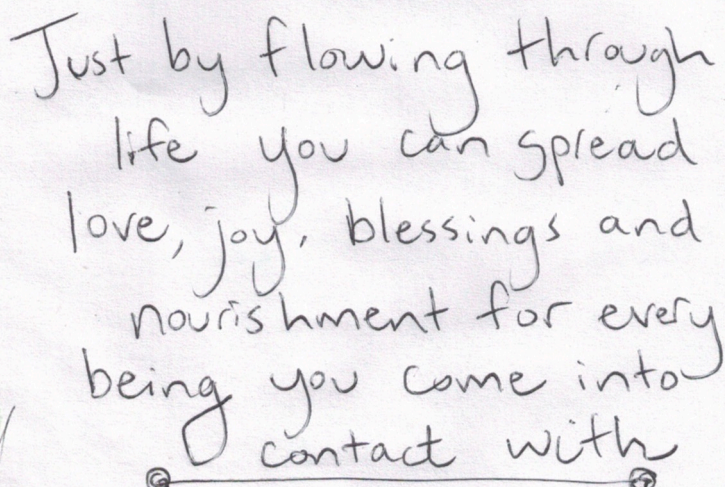 Just by flowing through
life you can spread
love, joy, blessings and
nourishment for every
being you come into
contact with